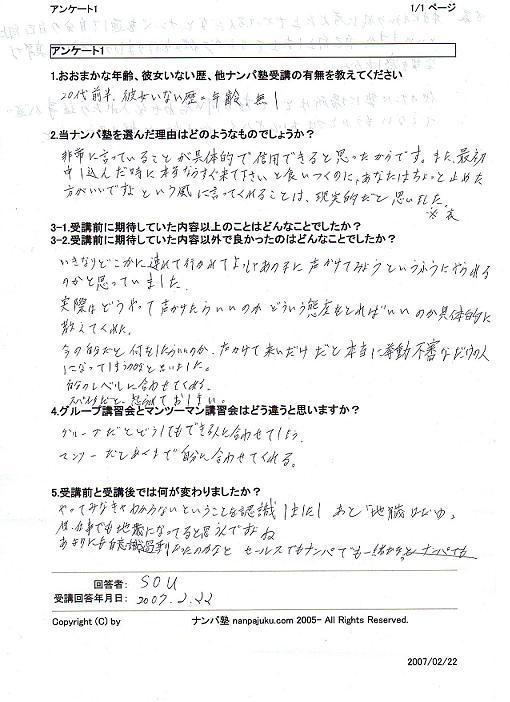 アンケート1
1/1 ページ
アンケート1
1.おおまかな年齢、彼女いない歴、他ナンパ塾受講の有無を教えてください
20代前半、彼女いない歴=年齢、無し
2.当ナンパ塾を選んだ理由はどのようなものでしょうか?
非常に言っていることが具体的で信用できると思ったからです。また、最初
申し込んだ時に本当ならすぐ来て下さいと食いつくのに、あなたはちょっと止めた
方がいいですよという風に言ってくれることは、現実的だと思いました。
※裏
3-1.受講前に期待していた内容以上のことはどんなことでしたか?
3-2.受講前に期待していた内容以外で良かったのはどんなことでしたか?
いきなりどこかに連れて行かれてよしじゃあの子に声かけてみようというふうにやられる
のかと思っていました。
実際はどうやって声かけたらいいのかどういう態度をとればいいのか具体的に
教えてくれた。
今の自分だと何をしたらいいのか、ただ 来いだけだと本当に挙動不審なだけの人
になってしまうのかなと思いました。
自分のレベルに合わせてくれる。
スパルタだと、怒られておしまい。
4.グループ講習会とマンツーマン講習会はどう違うと思いますか?
グループだとどうしてもできる人に合わせてしまう。
マンツーだとあくまで自分に合わせてくれる。
5.受講前と受講後では何が変わりましたか?
やってみなきゃわからないということを認識しました!あと「地蔵
仕事でも地蔵になってると思うんですね
あまりにも自意識過剰だったのかなと セールスでもナンパでも一緒だから、ナンパでも
回答者: SOU
受講回答年月日: 2007.2.22
Copyright (C) by ナンパ塾 nanpajuku.com 2005- All Rights Reserved.
2007/02/22